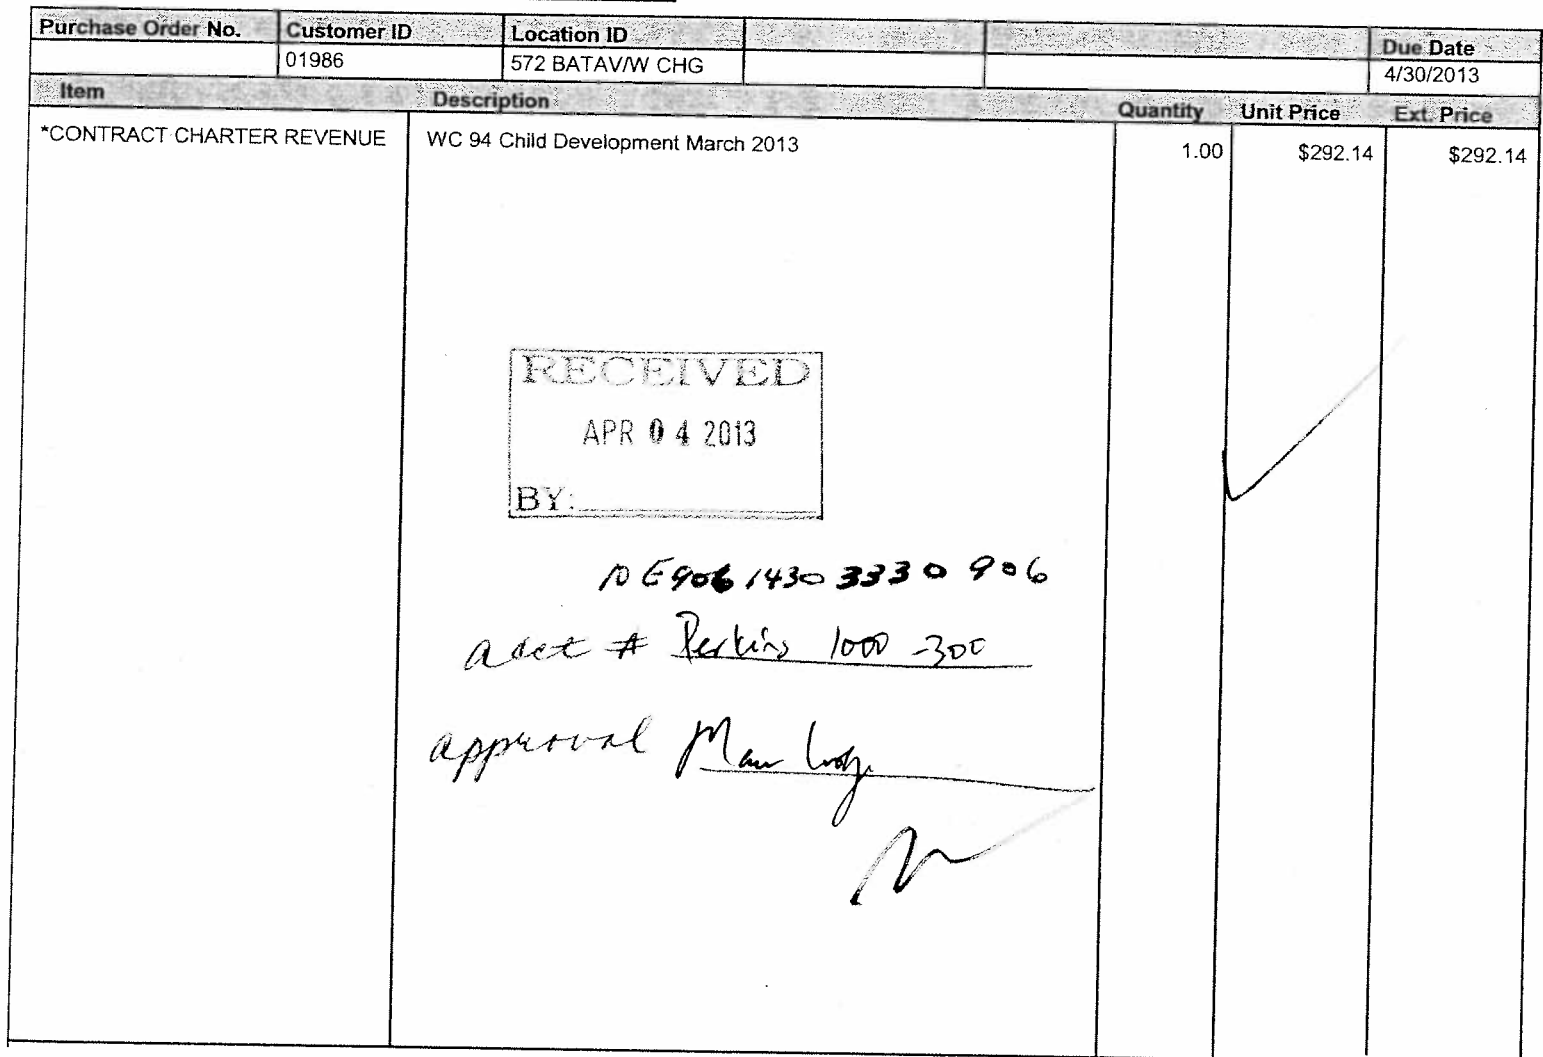 Purchase Order No. Customer ID Location ID Due Date
01986 572 BATAV/W CHG 4/30/2013
Item Description Quantity Unit Price Ext. Price
*CONTRACT CHARTER REVENUE WC 94 Child Development March 2013 1.00 $292.14 $292.14
RECEIVED
APR 04 2013
BY:
906 1430 3330 906
acct # Perkins 1000 -300
approval